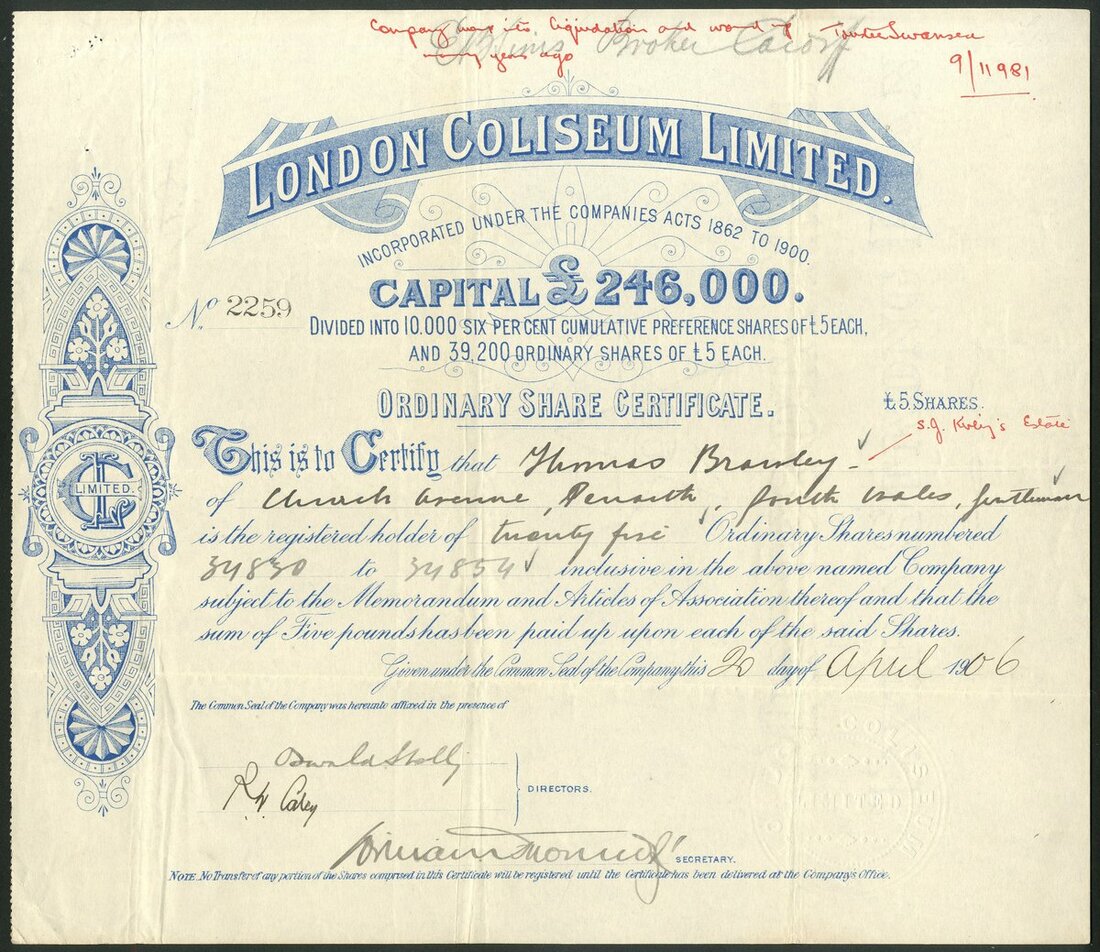 Company was into liquidation and wound up
many years ago
Swansea
9/1 1981
Broker Cardiff
LONDON COLISEUM LIMITED.
INCORPORATED UNDER THE COMPANIES ACTS 1862 TO 1900.
CAPITAL £246,000.
No. 2259
DIVIDED INTO 10.000 SIX PER CENT CUMULATIVE PREFERENCE SHARES OF £5 EACH,
AND 39,200 ORDINARY SHARES OF £5 EACH.
ORDINARY SHARE CERTIFICATE.
£5 SHARES.
Estate
This is to Certify that Thomas Brawley
of Church Avenue, Penarth, South Wales, Gentleman
is the registered holder of twenty five Ordinary Shares numbered
34830 to 34854 inclusive in the above named Company
subject to the Memorandum and Articles of Association thereof and that the
sum of Five pounds has been paid up upon each of the said Shares.
Given under the Common Seal of the Company this 20 day of April 1906
LIMITED.
The Common Seal of the Company was hereunto affixed in the presence of
Oswald Stoll
DIRECTORS.
SECRETARY.
NOTE. No Transfer of any portion of the Shares comprised in this Certificate will be registered until the Certificate has been delivered at the Company's Office.